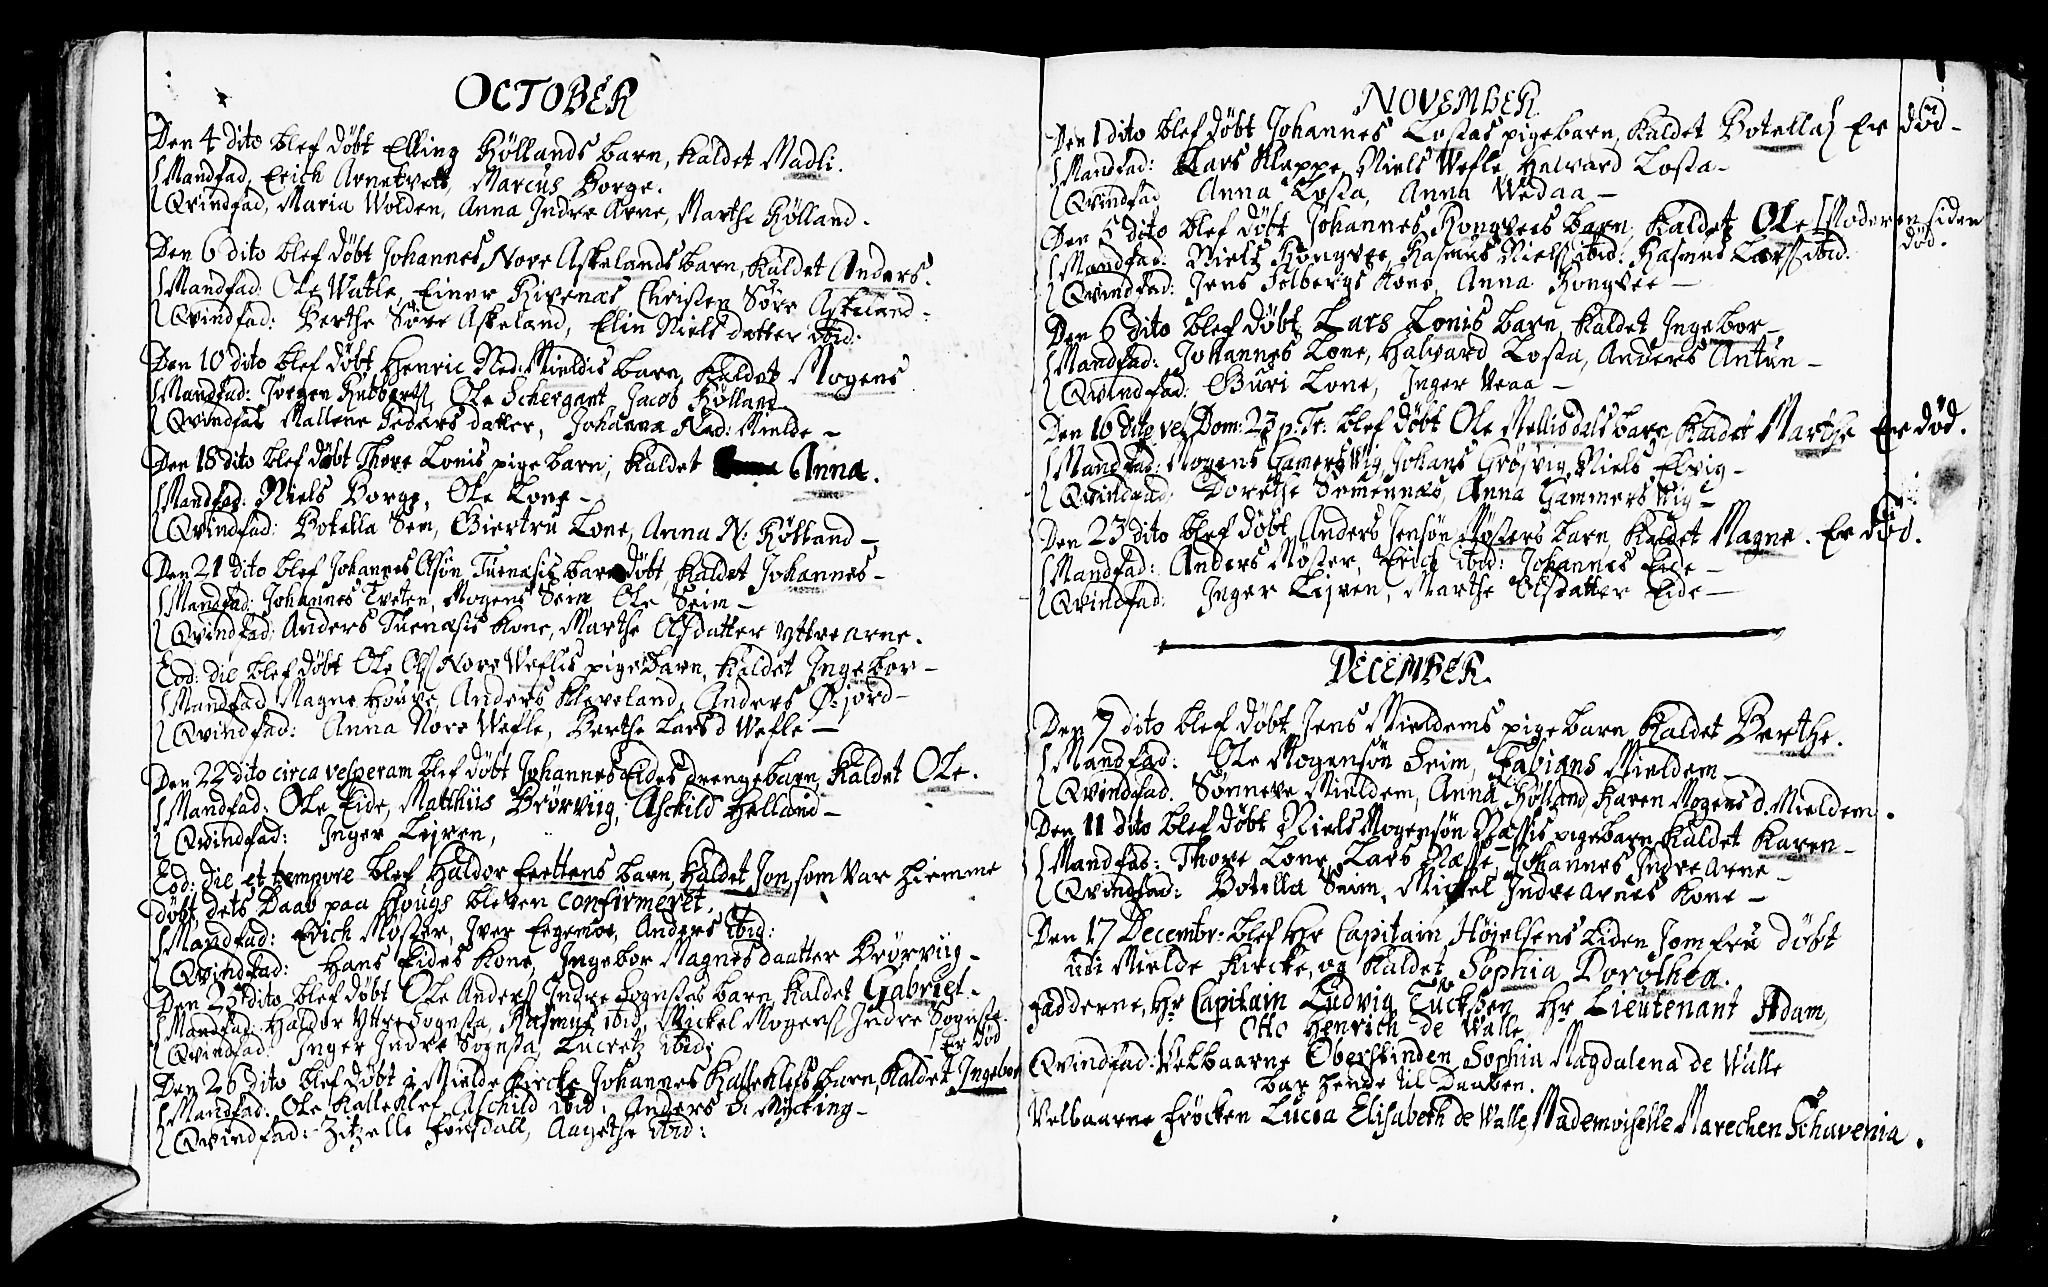 OCTOBER
Den 4 dito blef døbt Elling Höllands barn, kaldet Madli.
Mandfad. Erich Arnetvett, Marcus Borge.
Qvindfad, Maria Wolden, Anna Indre Arne, Marthe Hölland.
Den 6 dito blef døbt Johannes Nore Askelands barn, kaldet Anders.
Mandfad: Ole Watle, Einer Rivenæs, Christen Söre Askeland.
Qvindfad: Berthe Söre Askeland, Elin Niels datter ibid:
Den 10 dito blef døbt Henric Ned: Mieldis barn, kaldet Mogens
Mandfad: Jørgen, Ole Schergant, Jacob Hölland
Qvindfad Mallene Peders datter, Johanna Ned: Mielde –
Den 18 dito blef døbt Thore Lonis pige barn, kaldet Anna.
Mandfad: Niels Borge, Ole Lone –
Qvindfad: Botella Sem, Giertru Lone, Anna N: Hölland –
Den 21 dito blef Johannes Olsön Tuenæsis barn døbt, kaldet Johannes –
Mandfad: Johannes Tveten, Mogens Seim Ole Seim –
Qvindfad: Anders Tuenæsis Kone, Marthe Olsdatter Yttre Arne.
Eod: die blef døbt Ole Ols Nore Weflis pige barn, kaldet Ingebor –
Mandfad Magne Houge, Anders Kleveland, Anders Ø:jord –
Qvindfad: Anna Nore Wefle, Berthe Lars d Wefle –
Den 22 dito circa vesperam blef døbt Johannes Eides drengebarn, kaldet Ole.
Mandfad: Ole Eide, Matthiis Brørviig, Aschild Helland –
Qvindfad: Inger Leiren,
Eod: die et tempore blef Haldor Frettens barn, kaldet Jon, som var hiemme
døbt, dets Daab paa Hougs bleven confirmeret.
Mandfad: Erich Möster, Iver Eegemoe, Anders ibid:
Qvindfad: Hans Eides Kone, Ingebor Magnes daatter Brørviig –
Den 25 dito blef døbt Ole Anders Indre Sognstes barn, kaldet Gabriel –
Mandfad: Haldor Yttre Sognsta, Rasmus ibid, Mickel Mogens Indre Sognste.
Qvindfad: Inger Indre Sognsta, Lucretz ibid; Er død
Den 26 dito blef døbt i Mielde Kircke Johannes Kalleklefs barn, kaldet Ingebor
Mandfad: Ole Kalleklef, Aschild ibid, Anders D: Mÿcking –
Qvindfad: Zitzelle Fonsdall, Aagethe ibid:
NOVEMBER
Den 1 dito blef døbt Johannes Lostas pigebarn, kaldet Botella Er død –
Mandfad: Lars Kleppe, Niels Wefle, Halvard Losta –
Qvindfad Anna Losta, Anna Wedaa –
Den 5 dito blef døbt Johannes Rongvees barn, kaldet Ole [Moderen siden død.
Mandfad: Niels Rongvee, Rasmus Niels ibid: Rasmus Lars ibid.
Qvindfad: Jens Solbergs Kone, Anna Rongvee –
Den 6 dito blef døbt Lars Lonis barn, kaldet Ingebor –
Mandfad: Johannes Lone, Halvard Losta, Anders Antun –
Qvindfad: Guri Lone, Inger Veaa –
Den 16 dito vel Dom: 23 p. Tr: blef døbt Ole Mellisdals barn, kaldet Marthe Er død.
Mandfad: Mogens Gamersviig, Johans Grøsvig, Niels Elvig –
Qvindfad: Dorethe Semennæs, Anna Gammersviig –
Den 23 dito blef døbt Anders Jensön Mösters barn, kaldet Magne. Er død.
Mandfad: Anders Möster, Erich ibid: Johannes Eide –
Qvindfad: Inger Leiren, Marthe Olsdatter Eide –
DECEMBER.
Den 7 dito blef døbt Jens Mieldems pige barn, kaldet Berthe.
Mandfad: Ole Mogensön Seim, Fabians Mieldem –
Qvindfad. Sönneve Mieldem, Anna Hölland, Karen Mogens d. Mieldem.
Den 11 dito blef døbt Niels Mogensön Næssis pigebarn, kaldet Karen –
Mandfad: Thore Lone, Lars Næsse, Johannes Indre Arne –
Qvindfad: Botella Seim, Mickel Indre Arnes Kone –
Den 17 Decembr: blef Hr Capitain Højelsens liden Jomfru døbt
udi Mielde Kircke, og kaldet Sophia Dorothea.
Fadderne, Hr Capitain Ludvig Tuckssen, Hr Lieutenant Adam,
Otto Henrich de Walle,
Qvindfad. Velbaarne Oberstinden Sophia Magdalena de Walle
bar hende til Daaben.
Velbaarne Frøcken Lucia Elisabeth de Walle, Mademoiselle Marechen Schavenia.